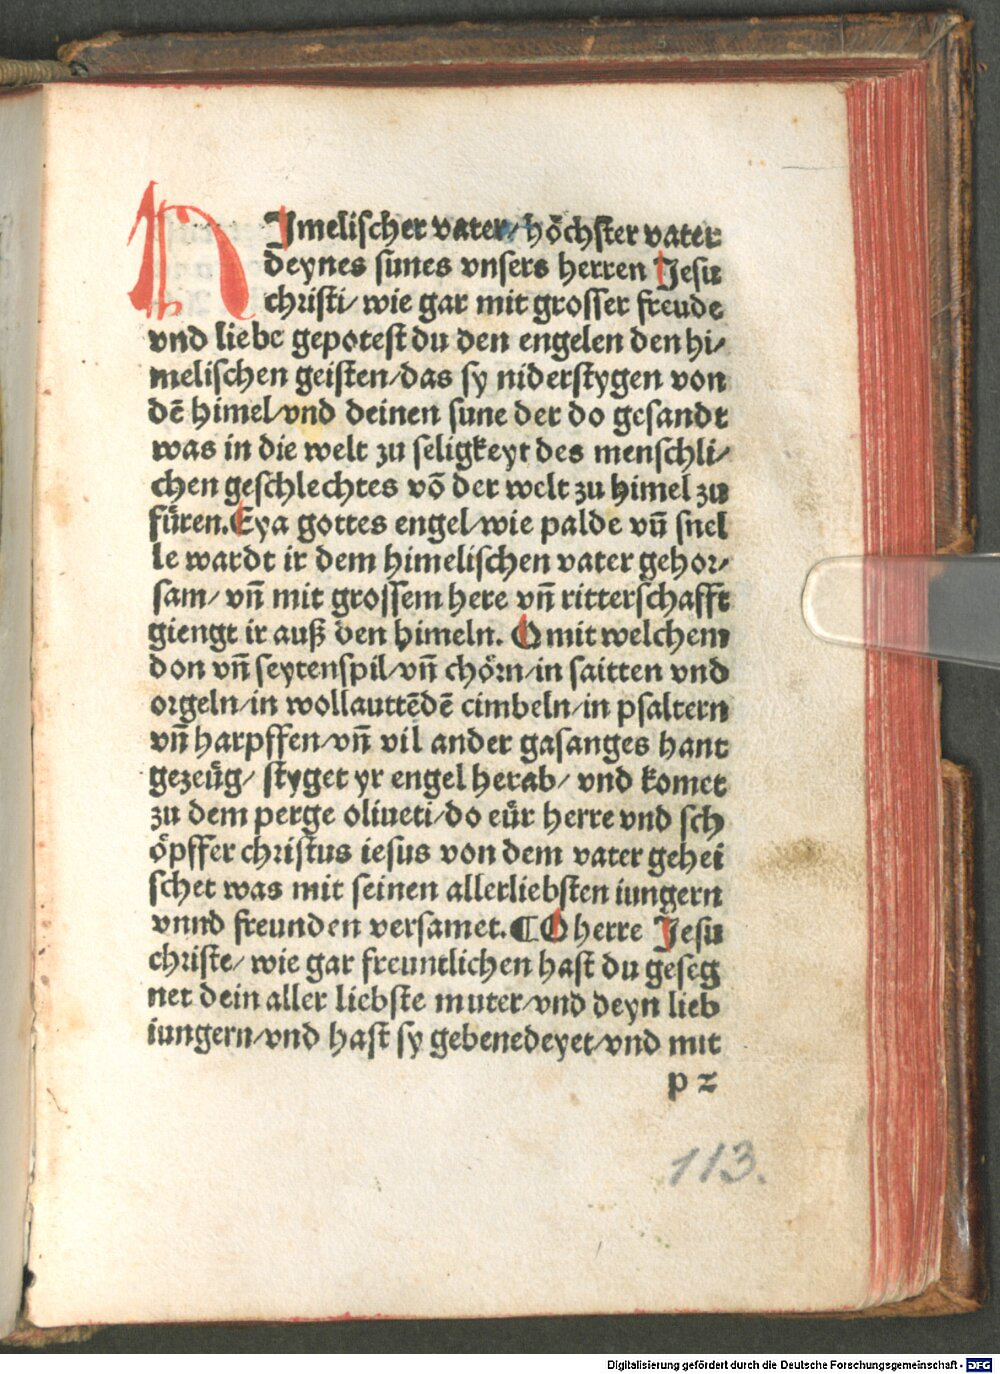 HImelischer vater/ höchster vater
deynes sunes vnsers herren Jesu
christi/ wie gar mit grosser freude
vnd liebe gepotest du den engelen den hi/
melischen geisten/das sy niderstygen von
dē himel/vnd deinen sune der do gesandt
was in die welt zu seligkeyt des menschli/
chen geschlechtes vō der welt zu himel zu
füren.Eya gottes engel/wie palde vn̄ snel
le wardt ir dem himelischen vater gehor/
sam/ vn̄ mit grossem here vn̄ ritterschafft
giengt ir auß den himeln. O mit welchem
don vn̄ seytenspil/vn̄ chörn/in saitten vnd
orgeln/in wollauttēdē cimbeln/in psaltern
vn̄ harpffen/vn̄ vil ander gasanges hant
gezeüg/ styget yr engel herab/ vnd komet
zu dem perge oliueti/do eür herre vnd sch
öpffer christus iesus von dem vater gehei
schet was mit seinen allerliebsten iungern
vnnd freunden versamet.¶O herre Jesu
christe/ wie gar freuntlichen hast du geseg
net dein aller liebste muter/vnd deyn lieb
iungern/vnd hast sy gebenedeyet/vnd mit
p 2
113.
Digitalisierung gefördert durch die Deutsche Forschungsgemeinschaft - DFG